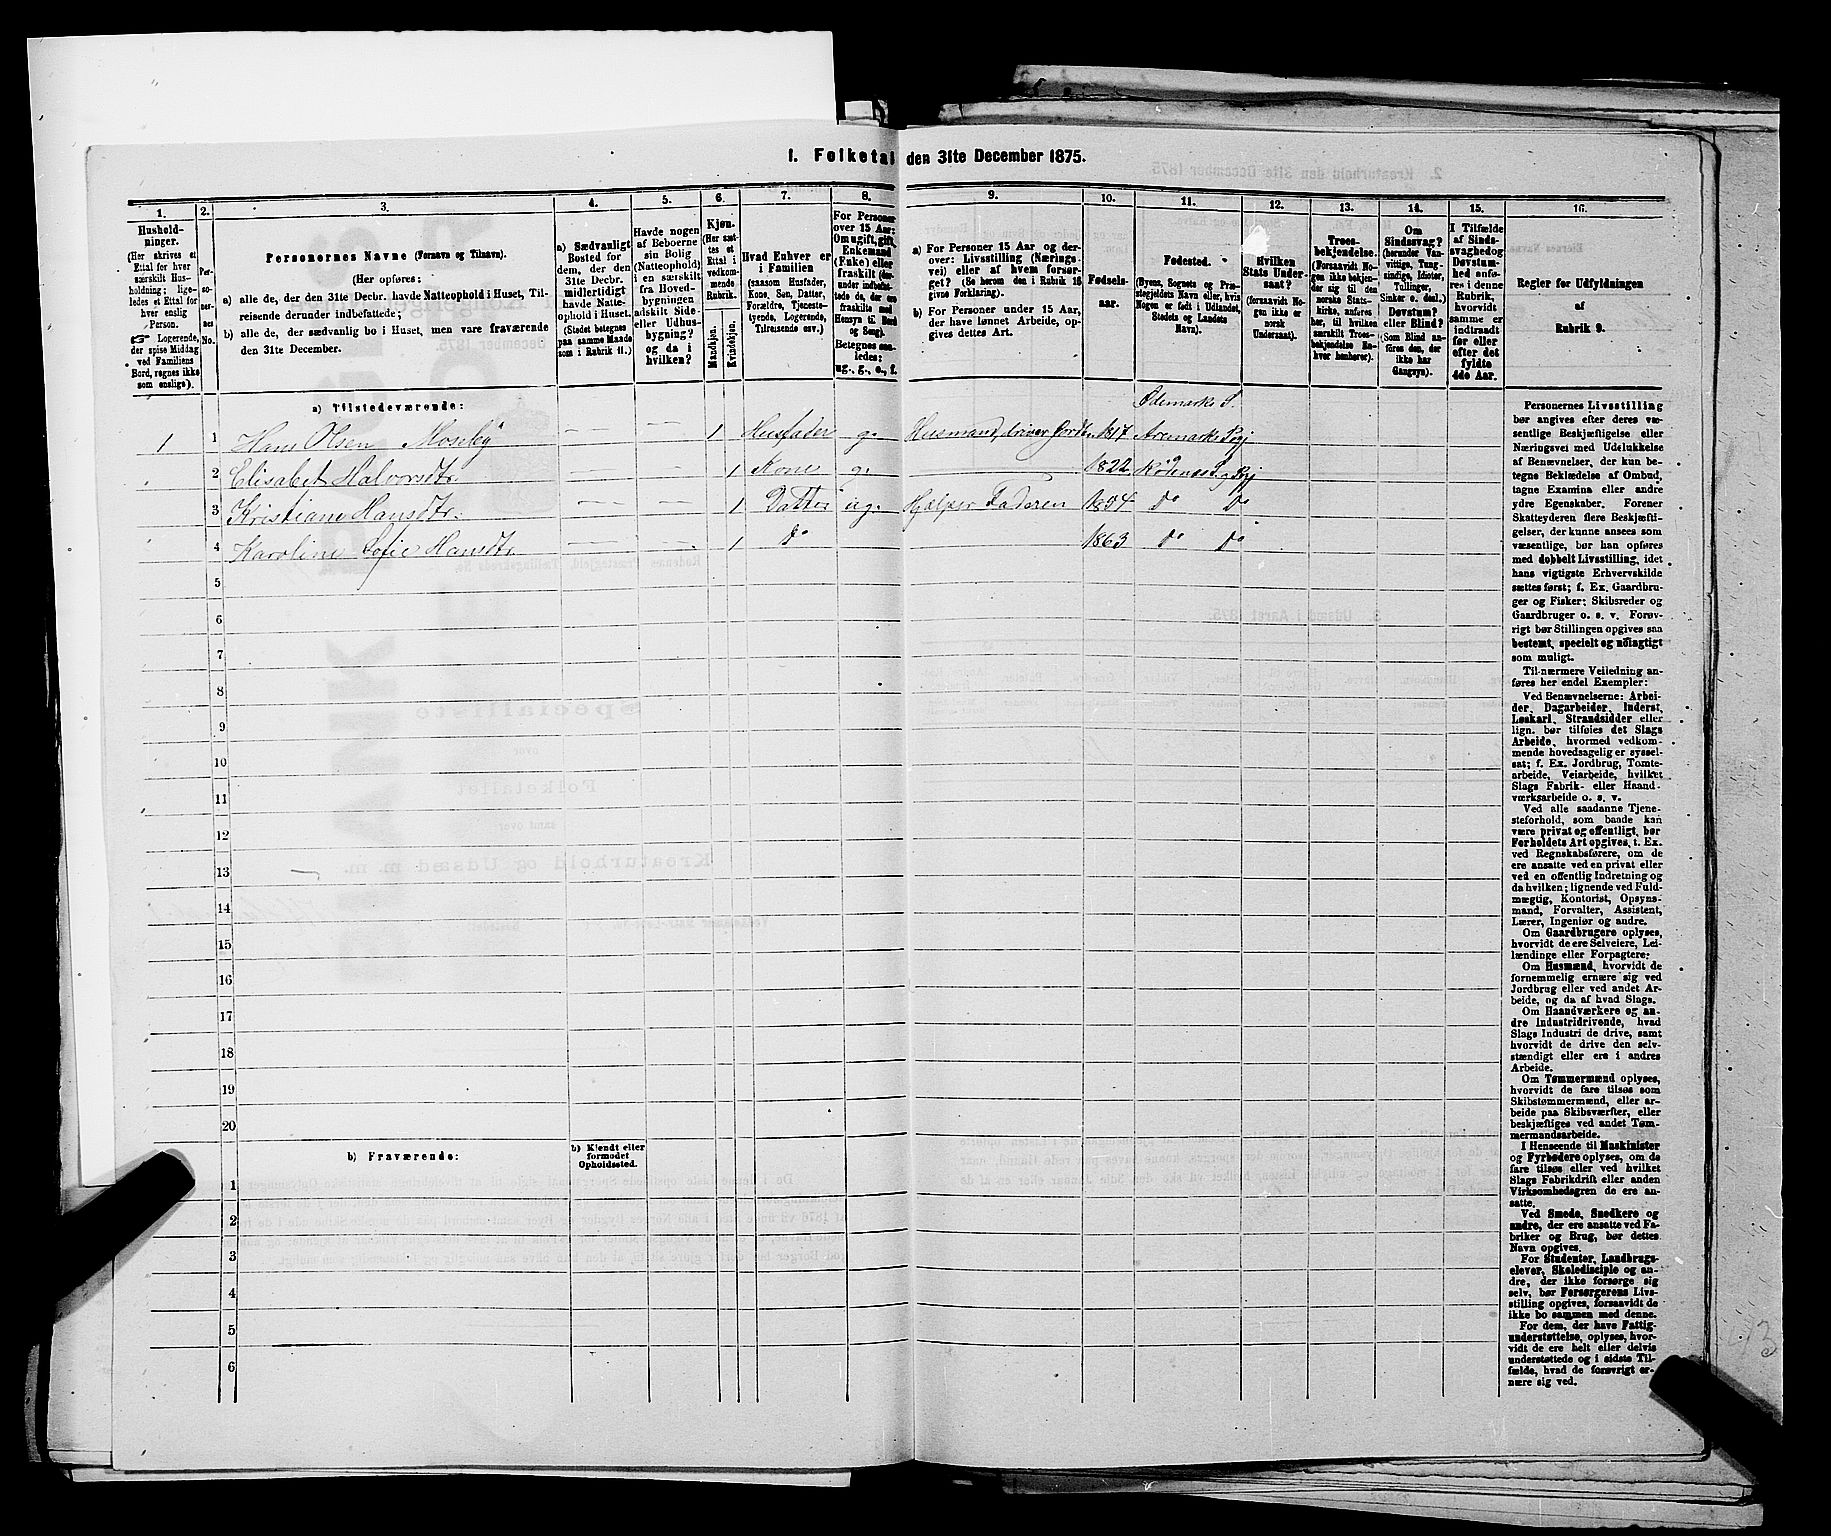 1. Folketal den 31te December 1875.
1. 2. 3. 4. 5. 6. 7. 8. 9. 10. 11. 12. 13. 14. 15. 16.
Hushold-
ninger.
(Her skrives et
Ettal for hver
særskilt Hus-
holdning; lige-
ledes et Ettal for
hver enslig
Person.
☞ Logerende,
der spise Middag
ved Familiens
Bord, regnes ikke
som enslige).
Per-
so-
ner-
nes
No.
Personernes Navne (Fornavn og Tilnavn).
(Her opføres:
a) alle de, der den 31te Decbr. havde Natteophold i Huset, Til-
reisende derunder indbefattede;
b) alle de, der sædvanlig bo i Huset, men vare fraværende
den 31te December.
a) Sædvanligt
Bosted for
dem, der den
31te Decbr.
midlertidigt
havde Natte-
ophold i Huset.
(Stedet betegnes
paa samme Maade
som i Rubrik 11.)
Havde nogen
af Beboerne
sin Bolig
(Natteophold)
i en særskilt
fra Hoved-
bygningen
adskilt Side-
eller Udhus-
bygning?
og da i
hvilken?
Kjøn.
(Her sæt-
tes et
Ettal i
vedkom-
mende
Rubrik.
Mandkjøn.
Kvindekjøn.
Hvad Enhver er
i Familien
(saasom Husfader,
Kone, Søn, Datter,
Forældre, Tjeneste-
tyende, Logerende,
Tilreisende osv.)
For Personer
over 15 Aar:
Om ugift, gift,
Enkemand
(Enke) eller
fraskilt (der-
under indbefat-
tede de, der ere
fraskilte med
Hensyn til Bord
og Seng).
Betegnes saa-
ledes:
ug., g., e., f.
a) For Personer 15 Aar og der-
over: Livsstilling (Nærings-
vei) eller af hvem forsør-
get? (Se herom den i Rubrik 16
givne Forklaring).
b) For Personer under 15 Aar,
der have lønnet Arbeide, op-
gives dettes Art.
Fødsels-
aar.
Fødested.
(Byens, Sognets og Præ-
stegjeldets Navn eller, hvis
Nogen er født i Udlandet,
Stedets og Landets
Navn).
Hvilken
Stats Under-
saat?
(forsaavidt No-
gen ikke er
norsk
Undersaat).
Troes-
bekjendelse.
(Forsaavidt No-
gen ikke bekjen-
der sig til den
norske Stats-
kirke, anføres
her, til hvilken
særskilt Troes-
bekjendelse En-
hver henhører).
Om
Sindssvag?
(herunder Van-
vittige, Tung-
sindige, Idioter,
Tullinger,
Sinker o. desl.)
Døvstum?
eller Blind?
(Som Blind an-
føres den, der
ikke har
Gangsyn).
I Tilfælde
af Sinds-
svaghed og
Døvstum-
hed anfø-
res i denne
Rubrik,
hvorvidt
samme er
indtraadt
før eller
efter det
fyldte
4de Aar.
Regler for Udfyldningen
af
Rubrik 9.
a) Tilstedeværende:
Ødemarks S.
1 1 Hans Olsen Moseby — — 1 Husfader g. Husmand, driver Jordbr. 1817 Aremarks Pgj
2 Elisabet Halvorsdtr. — — 1 Kone g. 1822 Rødenes S. og Pgj
3 Kristiane Hansdtr. — — 1 Datter ug. Hjælper Faderen 1854 do do
4 Karoline Sofie Hansdtr. — — 1 do 1863 do do
5
6
7
8
9
10
11
12
13
14
15
16
17
18
19
20
b) Fraværende:
b) Kjendt eller
formodet
Opholdssted.
1
2
3
4
5
6
Personernes Livsstilling
bør angives efter deres væ-
sentlige Beskjæftigelse eller
Næringsvei med Udelukkelse
af Benævnelser, der kun be-
tegne Beklædelse af Ombud,
tagne Examina eller andre
ydre Egenskaber. Forener
Skatteyderen flere Beskjæfti-
gelser, der kunne ansees som
væsentlige, bør han opføres
med dobbelt Livsstilling, idet
hans vigtigste Erhvervskilde
sættes først; f. Ex. Gaardbru-
ger og Fisker; Skibsreder og
Gaardbruger o. s. v. Forøv-
rigt bør Stillingen opgives saa
bestemt, specielt og nøiagtigt
som muligt.
Til nærmere Veiledning an-
føres her endel Exempler:
Ved Benævnelserne: Arbei-
der, Dagarbeider, Inderst,
Løskarl, Strandsidder eller
lign. bør tilføies det Slags
Arbeide, hvormed vedkom-
mende hovedsagelig er syssel-
sat; f. Ex. Jordbrug, Tomte-
arbeide, Veiarbeide, hvilket
Slags Fabrik- eller Haand-
værksarbeide o. s. v.
Ved alle saadanne Tjene-
steforhold, som baade kan
være privat og offentligt, bør
Forholdets Art opgives, t. Ex.
ved Regnskabsførere, om de
ere ansatte ved en privat eller
ved en offentlig Indretning og
da hvilken; lignende ved Fuld-
mægtig, Kontorist, Opsyns-
mand, Forvalter, Assistent,
Lærer, Ingeniør og andre.
Om Gaardbrugere oplyses,
hvorvidt de ere Selveiere, Lei-
lændinge eller Forpagtere;
Om Husmænd, hvorvidt de
fornemmelig ernære sig ved
Jordbrug eller ved andet Ar-
beide, og da af hvad Slags.
Om Haandværkere og an-
dre Industridrivende, hvad
Slags Industri de drive, samt
hvorvidt de drive den selv-
stændigt eller ere i andres
Arbeide.
Om Tømmermænd oplyses,
hvorvidt de fare tilsøs som
Skibstømmermænd, eller ar-
beide paa Skibsværfter, eller
beskjæftiges ved andet Tøm-
mermandsarbeide.
I Henseende til Maskinister
og Fyrbødere oplyses, om de
fare tilsøs eller ved hvilket
Slags Fabrikdrift eller anden
Virksomhedsgren de ere an-
satte.
Ved Smede, Snedkere og
andre, der ere ansatte ved Fa-
briker og Brug, bør dettes
Navn opgives.
For Studenter, Landbrugs-
elever, Skoledisciple og an-
dre, der ikke forsørge sig
selv, bør Forsørgerens Livs-
stilling opgives, forsaavidt de
ikke bo sammen med denne.
For dem, der have Fattig-
understøttelse, oplyses, hvor-
vidt de ere helt eller delvis
understøttede og i sidste Til-
fælde, hvad de forøvrigt er-
nære sig ved.